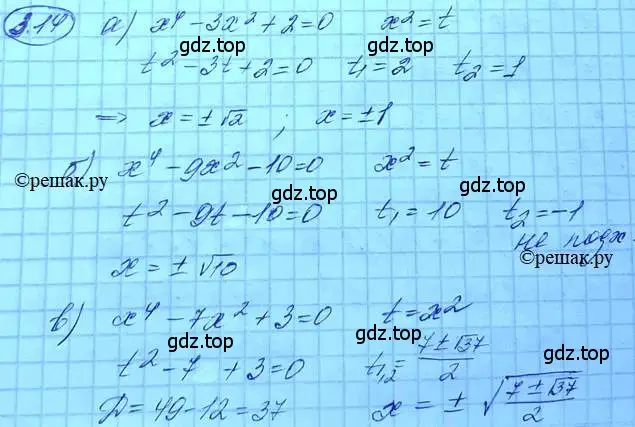 3.14 а) x⁴ - 3x² + 2 = 0 x² = t
gdz.top gdz.top
t² - 3t + 2 = 0 t₁ = 2 t₂ = 1
gdz.top
⇒ x = ±√2 ; x = ±1
б) x⁴ - 9x² - 10 = 0 x² = t
©решак.ру gdz.top gdz.top
t² - 9t - 10 = 0 t₁ = 10 t₂ = -1
не подх.
gdz.top
©решак.ру
x = ±√10
в) x⁴ - 7x² + 3 = 0 t = x²
gdz.top gdz.top
t² - 7 + 3 = 0 t₁,₂ = (7 ± √37)/2
gdz.top
D = 49 - 12 = 37 x = ± √((7 ± √37)/2)
gdz.top